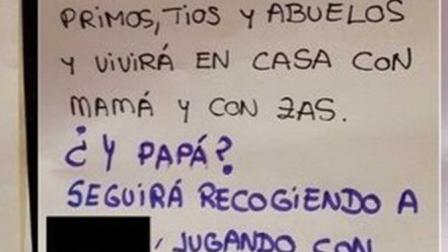 PRIMOS, TIOS Y ABUELOS
Y VIVIRÁ EN CASA CON
MAMÁ Y CON ZAS.
¿Y PAPÁ?
SEGUIRÁ RECOGIENDO A
, JUGANDO CON